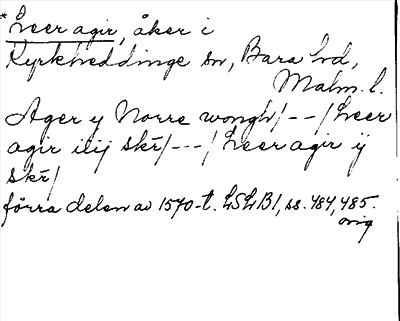 *Leer agir, åker i
Kyrkheddinge sn, Bara hd,
Malm. l.
Ager y Norre wongh/--/Leer
agir iiij skr̄/---/Leer agir ij
skr̄/
förra delen av 1570-t. LSLB1, ss. 484, 485.
orig